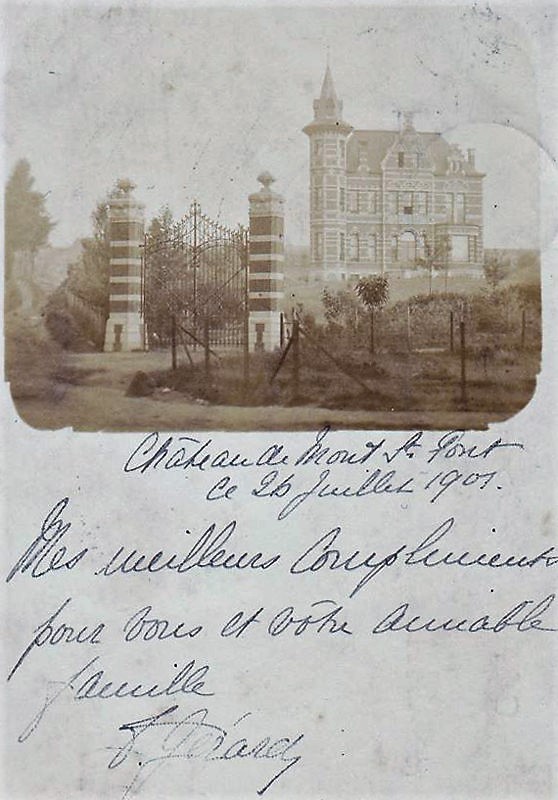 Château de Mont St. Pont
ce 26 Juillet 1901.
Mes meilleurs Compliments
pour vous et vôtre aimable
famille
F. Gérard